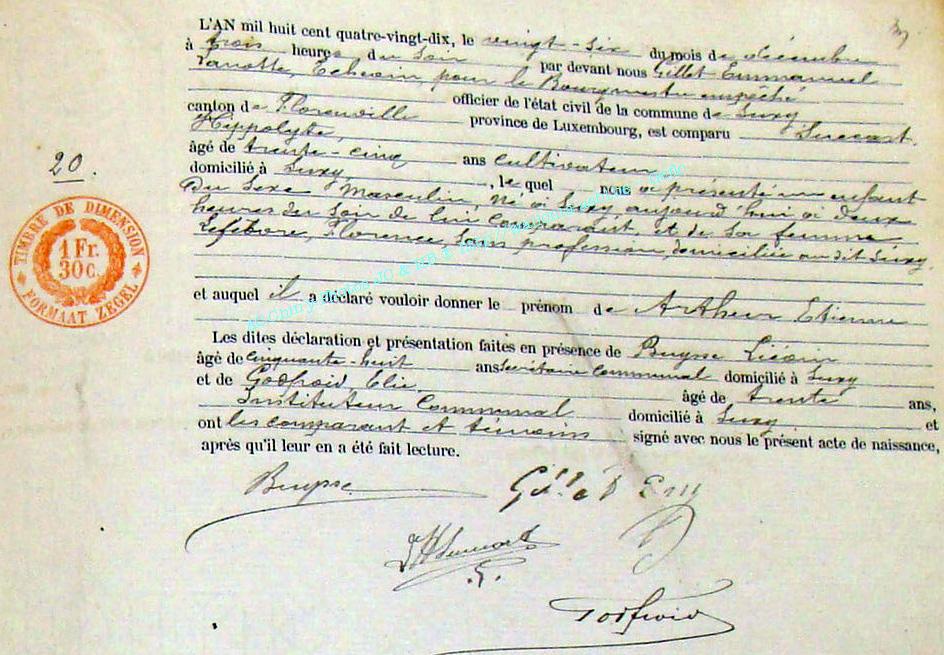 L'AN mil huit cent quatre-vingt-dix, le vingt-six du mois de décembre
à trois heures du soir par devant nous Gillet Emmanuel
Lanotte, Echevin pour le Bourgmestre empêché
officier de l'état civil de la commune de Suxy
canton de Florenville province de Luxembourg, est comparu
Hippolyte,
âgé de trente-cinq ans cultivateur
domicilié à Suxy, le quel nous a présenté un enfant
du sexe Masculin, né à Suxy aujourd'hui à deux
heures du soir de lui comparant, et de sa femme
Lefebvre, Florence, sans profession, domiciliée au dit Suxy.
et auquel il a déclaré vouloir donner le prénom de Arthur Etienne
Les dites déclaration et présentation faites en présence de Buysse
âgé de cinquante-huit ans Secrétaire Communal domicilié à Suxy
et de Godfroid, Elie. âgé de trente ans,
Instituteur Communal domicilié à Suxy et
ont les comparant et témoins signé avec nous le présent acte de naissance,
après qu'il leur en a été fait lecture.
20.
TIMBRE DE DIMENSION
1 Fr.
30 C.
FORMAAT ZEGEL
Buysse
Godfroid